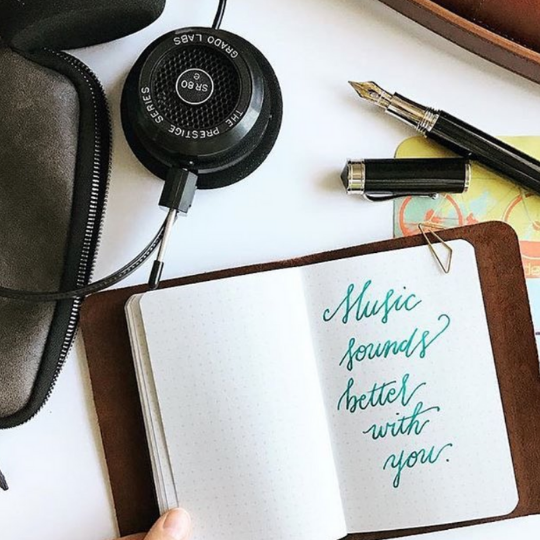 GRADO LABS
SR80
e
THE PRESTIGE SERIES
Music
sounds
better
with
you.